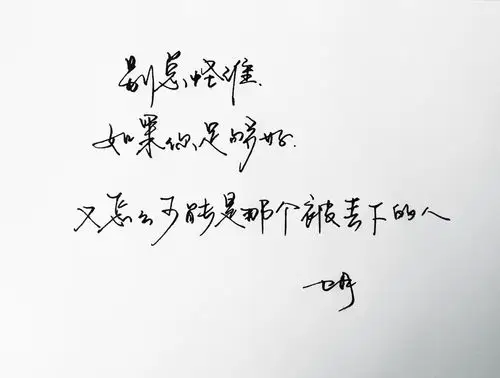 别总怪谁.
如果你足够好.
又怎么可能是那个被丢下的人